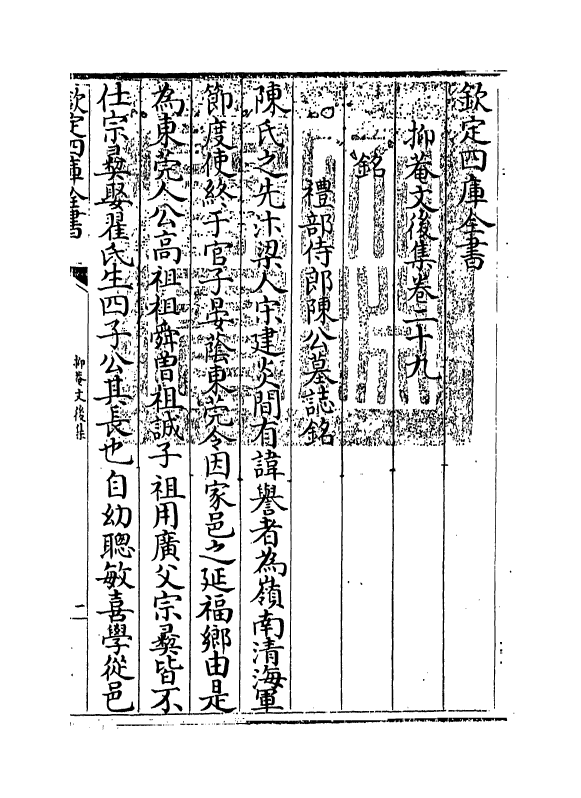 欽定四庫全書
抑菴文後集卷二十九
銘
禮部侍郎陳公墓誌銘
陳氏之先汴梁人宋建炎間有諱譽者為嶺南清海軍
節度使終于官子晏蔭東莞令因家邑之延福鄉由是
為東莞人公高祖祖舜曾祖誠子祖用廣父宗彜皆不
仕宗彜娶翟氏生四子公其長也自幼聰敏喜學從邑
欽定四庫全書
抑菴文後集